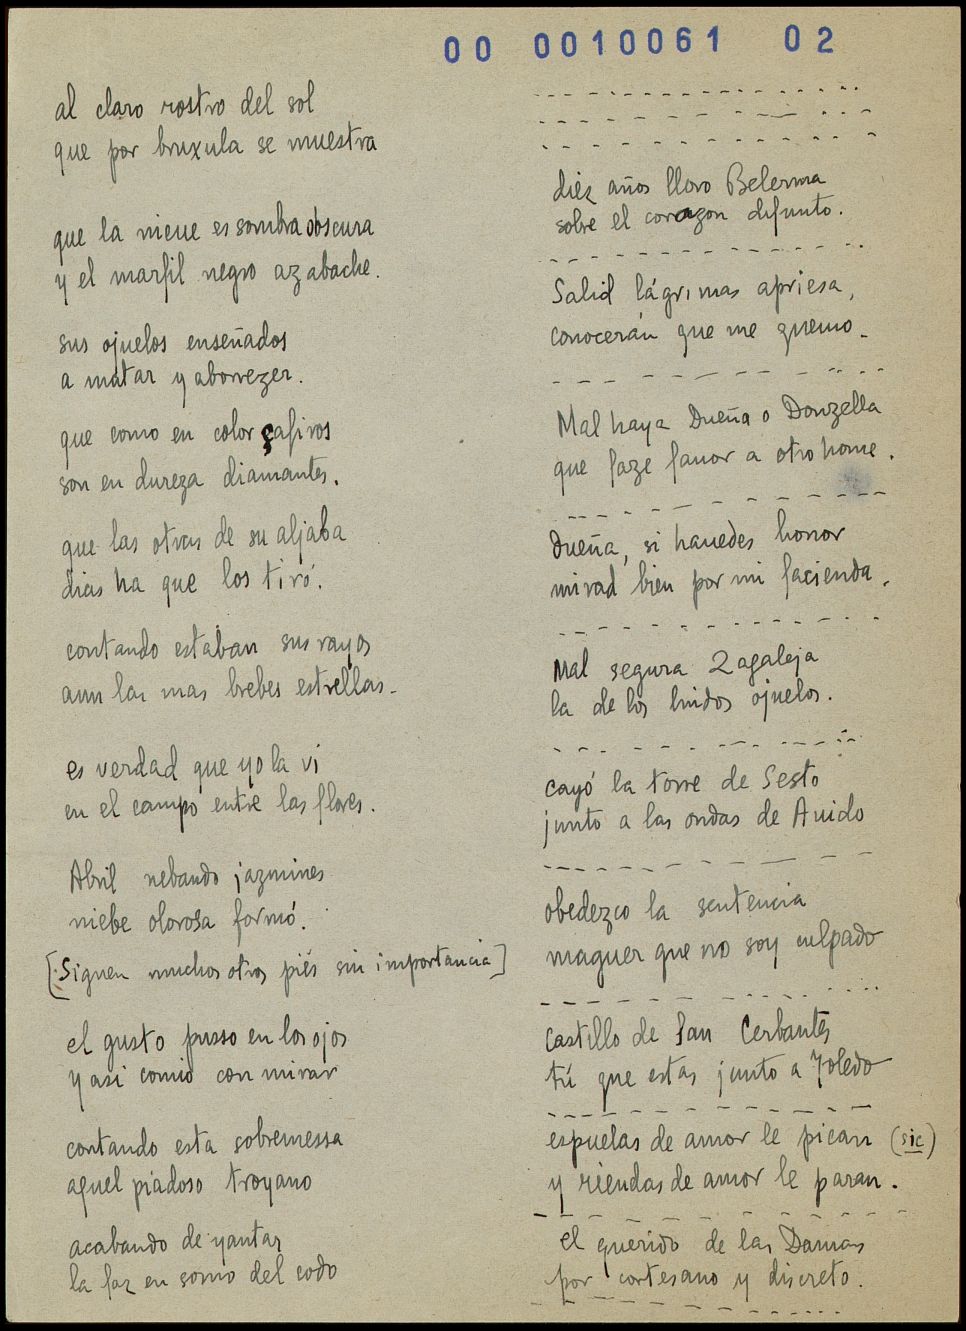 00 0010061 02
al claro rostro del sol
que por bruxula se muestra
que la nieue es sombra obscura
y el marfil negro azabache.
sus ojuelos enseñados
a matar y aborrezer.
que como en color çafiros
son en dureza diamantes.
que las otras de su aljaba
dias ha que los tiró.
contando estaban sus rayos
aun las mas brebes estrellas.
es verdad que yo la vi
en el campo entre las flores.
Abril nebando jazmines
niebe olorosa formó.
[Siguen muchos otros piés sin importancia]
el gusto pusso en los ojos
y asi comio con mirar
contando esta sobremessa
aquel piadoso troyano
acabando de yantar
la faz en somo del codo
diez años lloro Belerma
sobre el corazon difunto.
Salid lágrimas apriesa,
conocerán que me quemo.
Mal haya Dueña o Donzella
que faze fauor a otro home.
Dueña, si hauedes honor
mirad bien por mi facienda.
Mal segura Zagaleja
la de los lindos ojuelos.
cayó la torre de Sesto
junto a las ondas de Auido
obedezco la sentencia
maguer que no soy culpado
Castillo de San Cerbantes
tú que estas junto a Toledo
espuelas de amor le pican (sic)
y riendas de amor le paran.
el querido de las Damas
por cortesano y discreto.